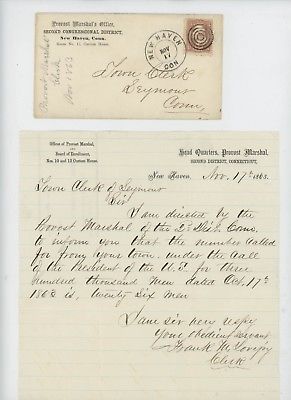 Provost Marshal's Office,
SECOND CONGRESSIONAL DISTRICT,
New Haven, Conn.
Rooms No. 11 Custom House.
Provost Marshal
Clerk
Nov 1863
NEW HAVEN
NOV
17
CON
Town Clerk
Seymour
Conn.
Office of Provost Marshal,
and
Board of Enrollment,
Nos. 10 and 12 Custom House.
Head Quarters, Provost Marshal,
SECOND DISTRICT, CONNECTICUT,
New Haven, Nov. 17th 1863.
Town Clerk of Seymour
Sir
I am directed by the
Provost Marshal of the 2d Dist. Conn.
to inform you that the number called
for from your town, under the call
of the President of the U.S. for three
hundred thousand men dated Oct. 17th
1863 is, twenty six men
I am sir very respy
Your obedient servant
Frank M. Lovejoy
Clerk